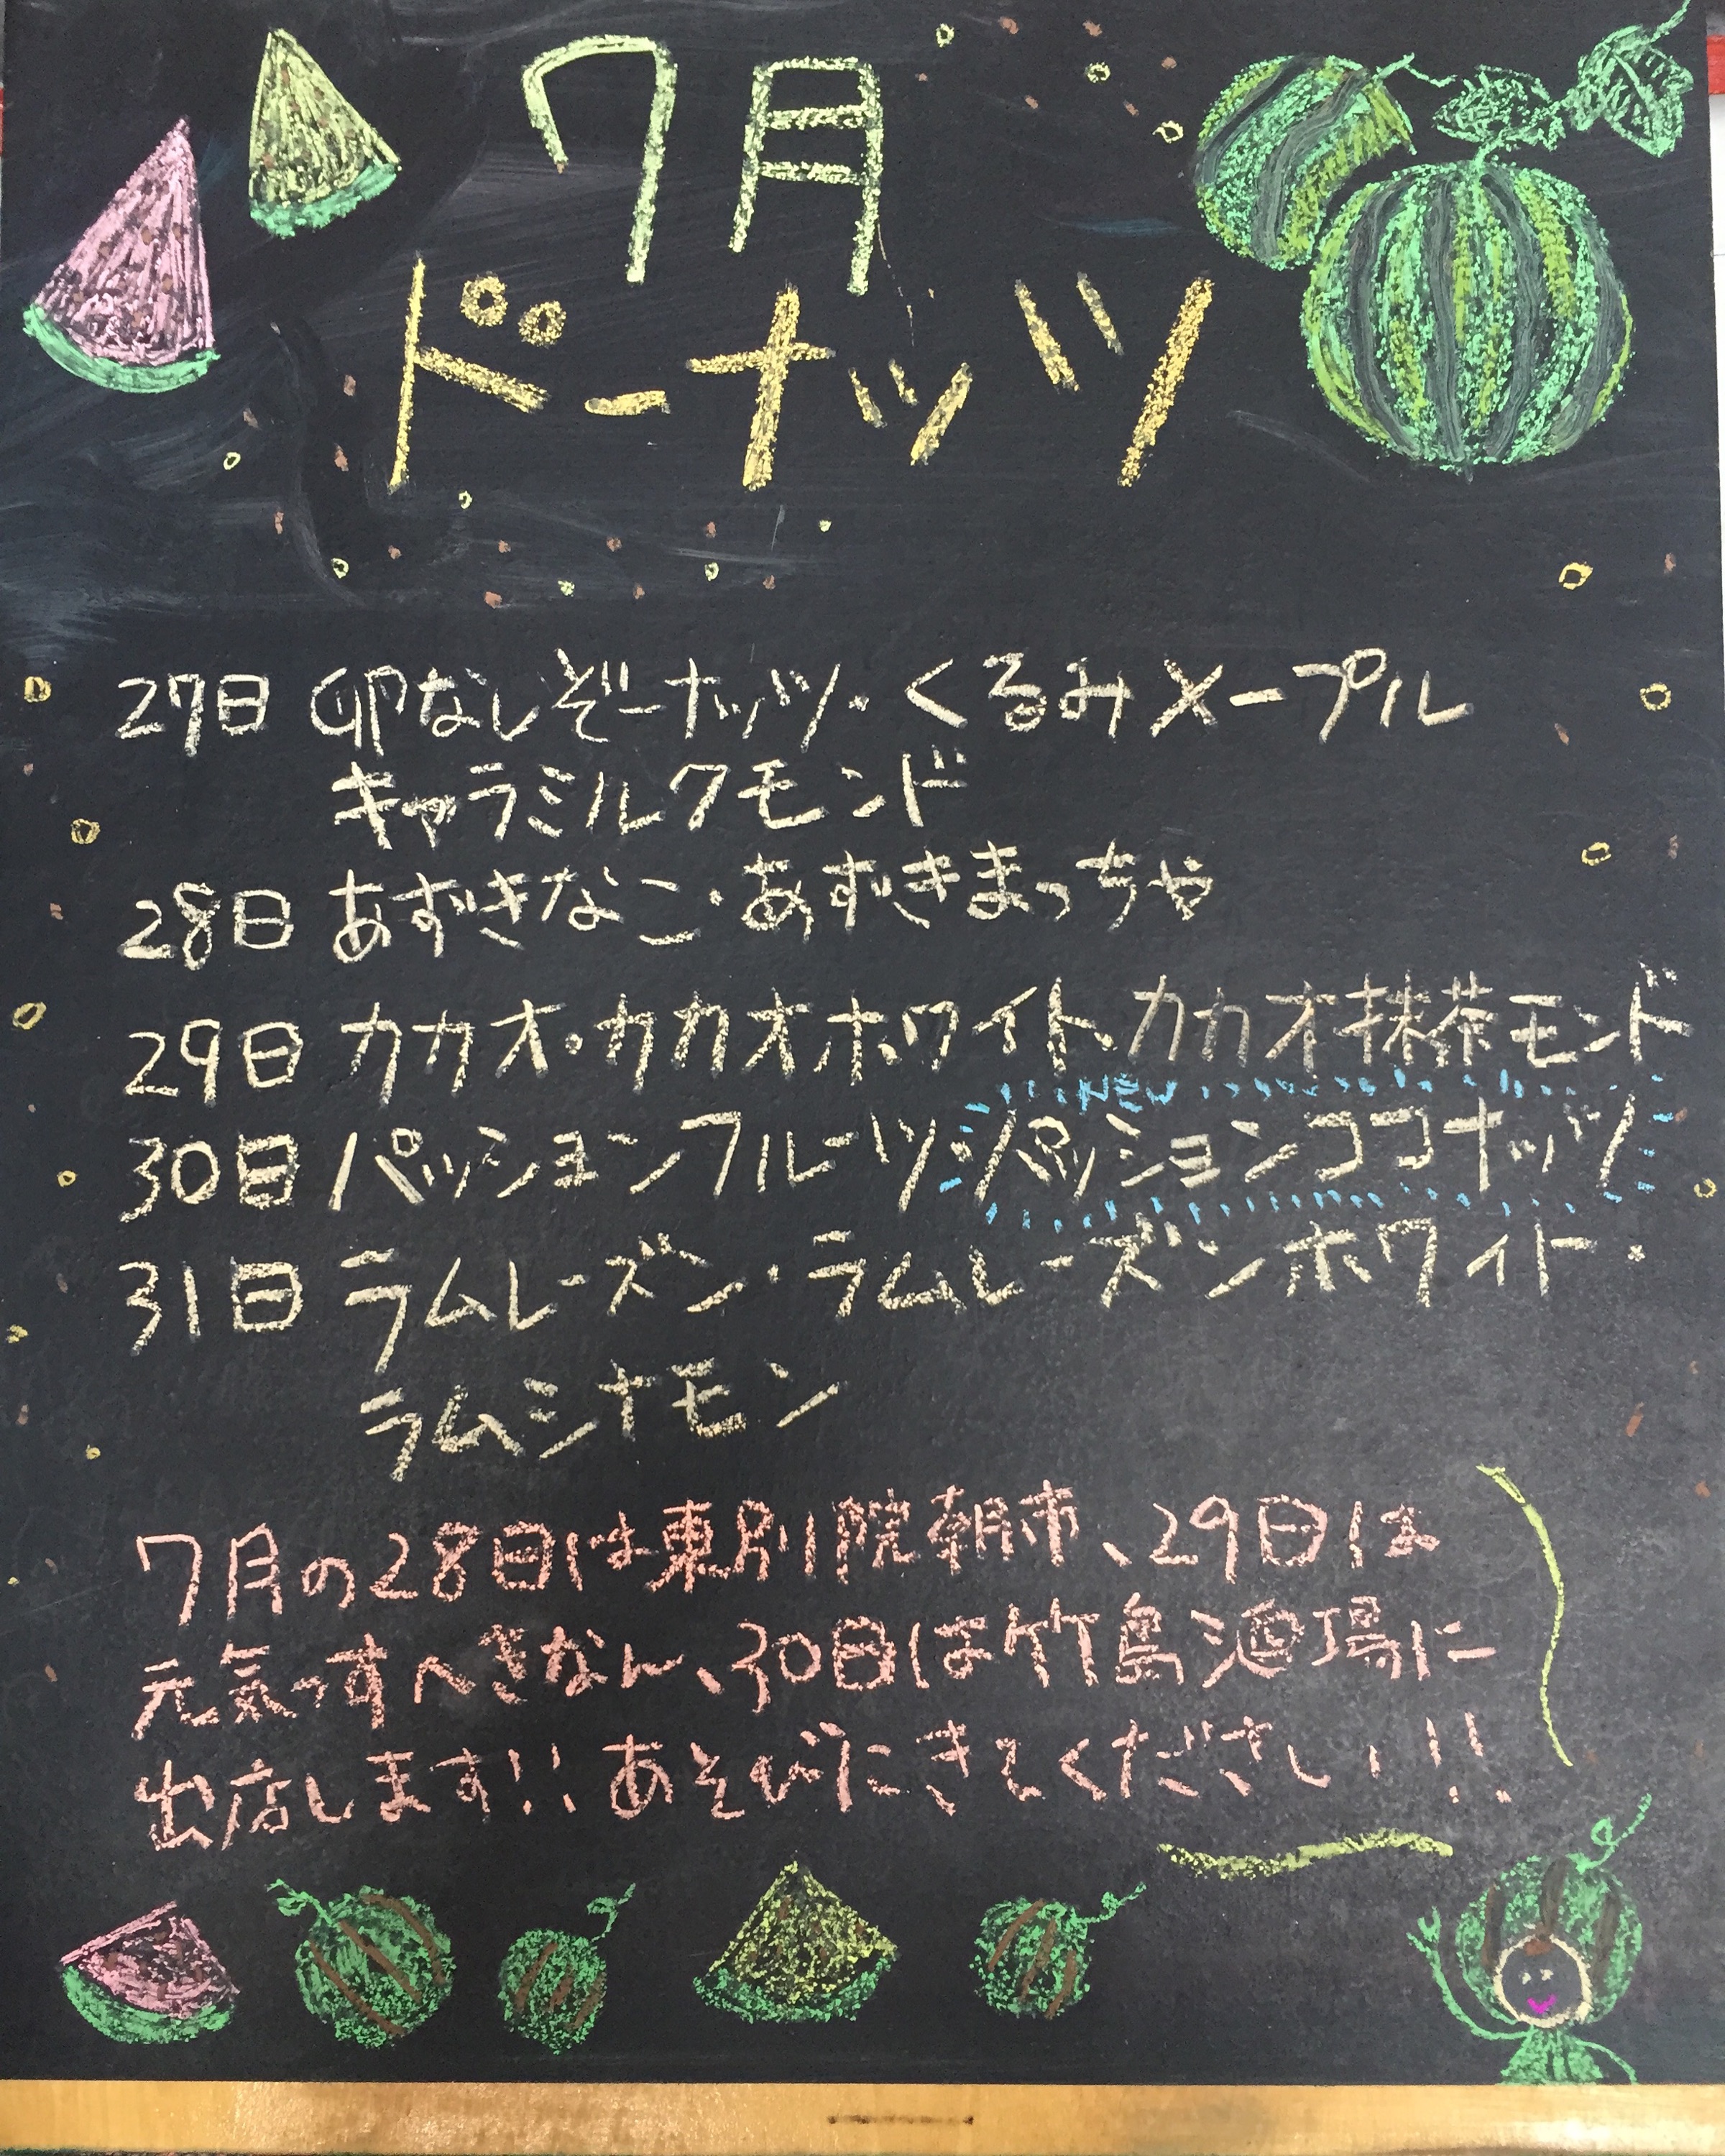 7月
ドーナッツ
27日 卵なしぞーナッツ・くるみメープル
キャラミルクモンド
28日 あずきなこ・あずきまっちゃ
29日 カカオ・カカオホワイト・カカオ抹茶モンド
NEW
30日 パッションフルーツ・パッションココナッツ
31日 ラムレーズン・ラムレーズンホワイト・
ラムシナモン
7月の28日は東別院朝市、29日は
元気っすへきなん、30日は竹島酒場に
出店します!!あそびにきてください!!